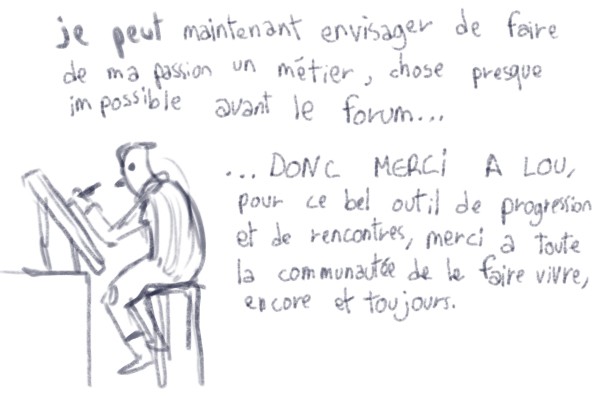 je peut maintenant envisager de faire
de ma passion un métier, chose presque
impossible avant le forum...
... DONC MERCI A LOU,
pour ce bel outil de progression
et de rencontres, merci a toute
la communautée de le faire vivre,
encore et toujours.